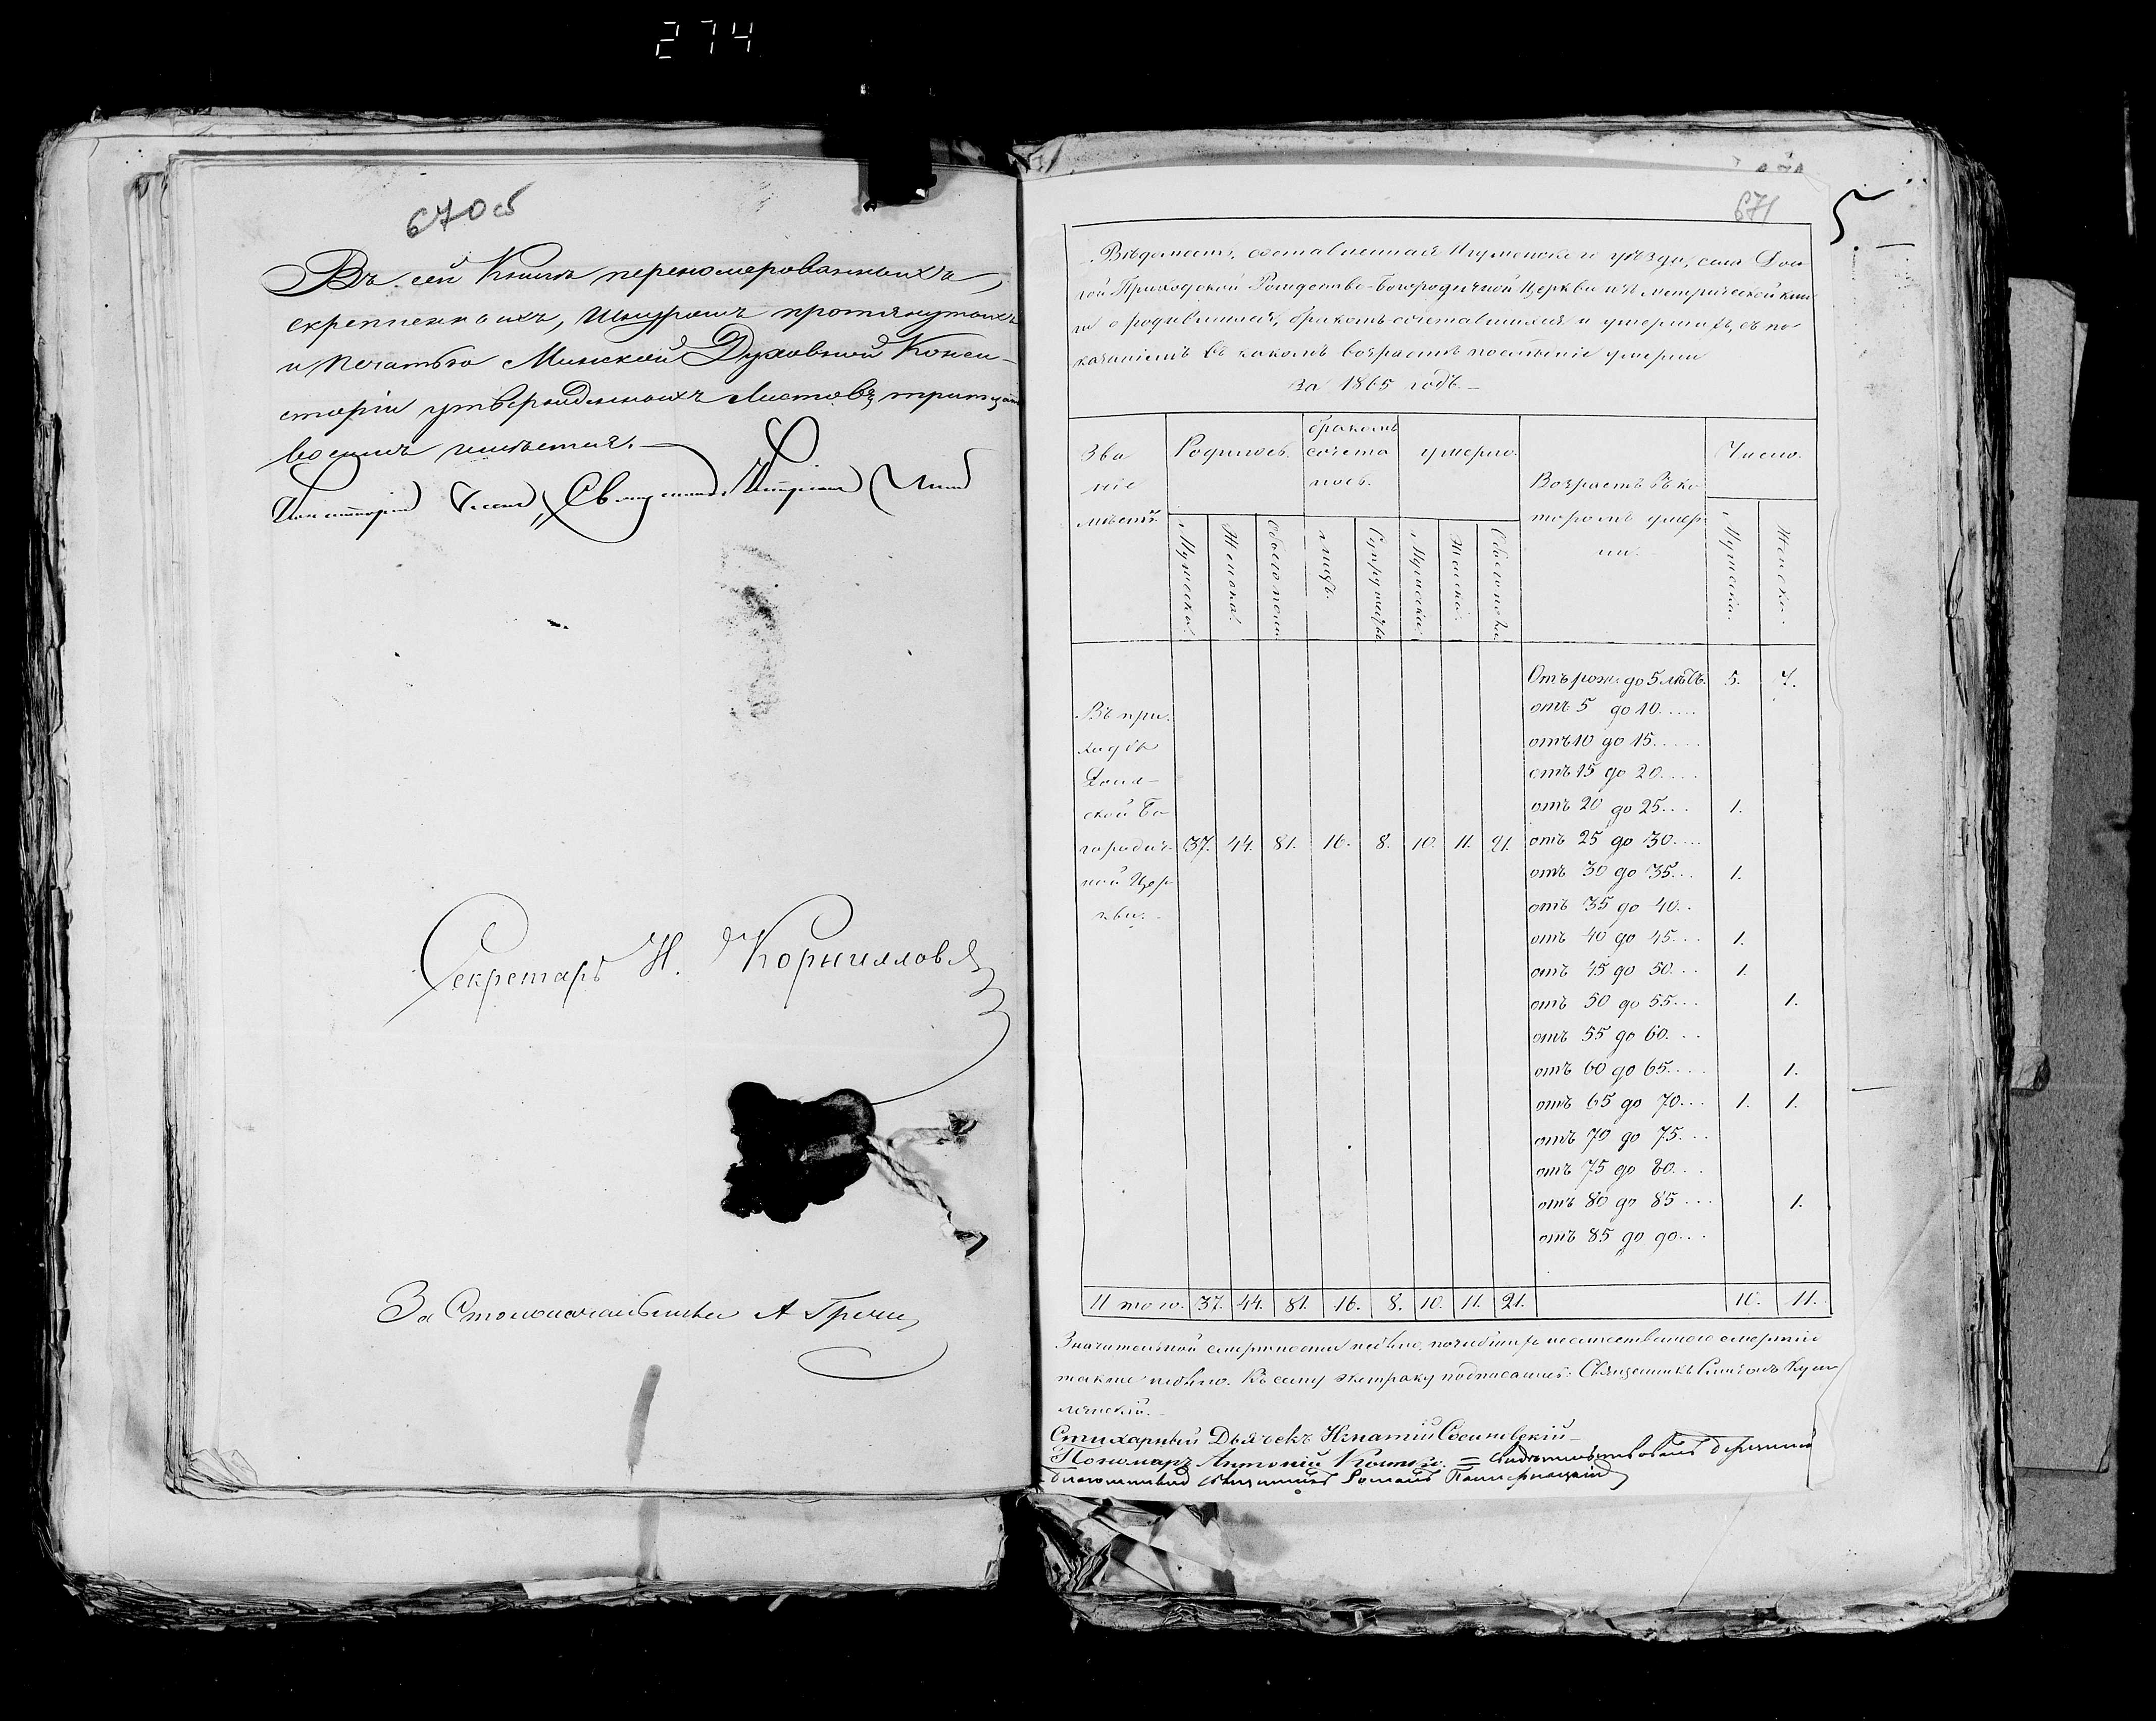 274
670об
Въ сей Книгѣ перенумерованныхъ,
скрепленныхъ, шнуромъ протянутыхъ
и печатью Минской Духовной Конси-
сторіи утвержденныхъ листовъ тритцать
восемь имѣется.
Консисторіи Членъ, Священникъ
Секретарь Н. Корниловъ
За Столоначальника А Гречи
671
5.
Вѣдомость, составленная Игуменскаго уѣзда, села
Приходской Рождество-Богородичной Церкви изъ метрической кни
ги о родившихся, бракомъ сочетавшихся и умершихъ, съ по
казаніемъ въ какомъ возрастѣ послѣдніе умерли
за 1865 годъ
Зва
ніе
мѣстъ.
Родилось.
бракомъ
сочета
лось.
умерло.
Возрастъ въ ко
торомъ умер
ли.
Число.
Мужеска.
Женска.
Обоего пола
лицъ.
Супружествъ
Мужеска.
Женска.
Обоего пола
Мужеска.
Женска.
Въ при
ходѣ
ской Бо
городич
ной Цер
кви.
37. 44. 81. 16. 8. 10. 11. 21.
Отъ рож. до 5 лѣтъ. 5. 7.
отъ 5 до 10.....
отъ 10 до 15.....
отъ 15 до 20....
отъ 20 до 25... 1.
отъ 25 до 30....
отъ 30 до 35... 1.
отъ 35 до 40..
отъ 40 до 45... 1.
отъ 45 до 50... 1.
отъ 50 до 55... 1.
отъ 55 до 60....
отъ 60 до 65.... 1.
отъ 65 до 70... 1. 1.
отъ 70 до 75...
отъ 75 до 80...
отъ 80 до 85.... 1.
отъ 85 до 90...
Итого. 37. 44. 81. 16. 8. 10. 11. 21. 10. 11.
Значительной смертности небыло, погибшихъ неестественною смертію
также небыло. Къ сему экстракту подписались: Священникъ Симеонъ
Стихарный Дьячекъ Игнатій Сосиновскій
Пономарь Антоній
Благочинный Священникъ Романъ